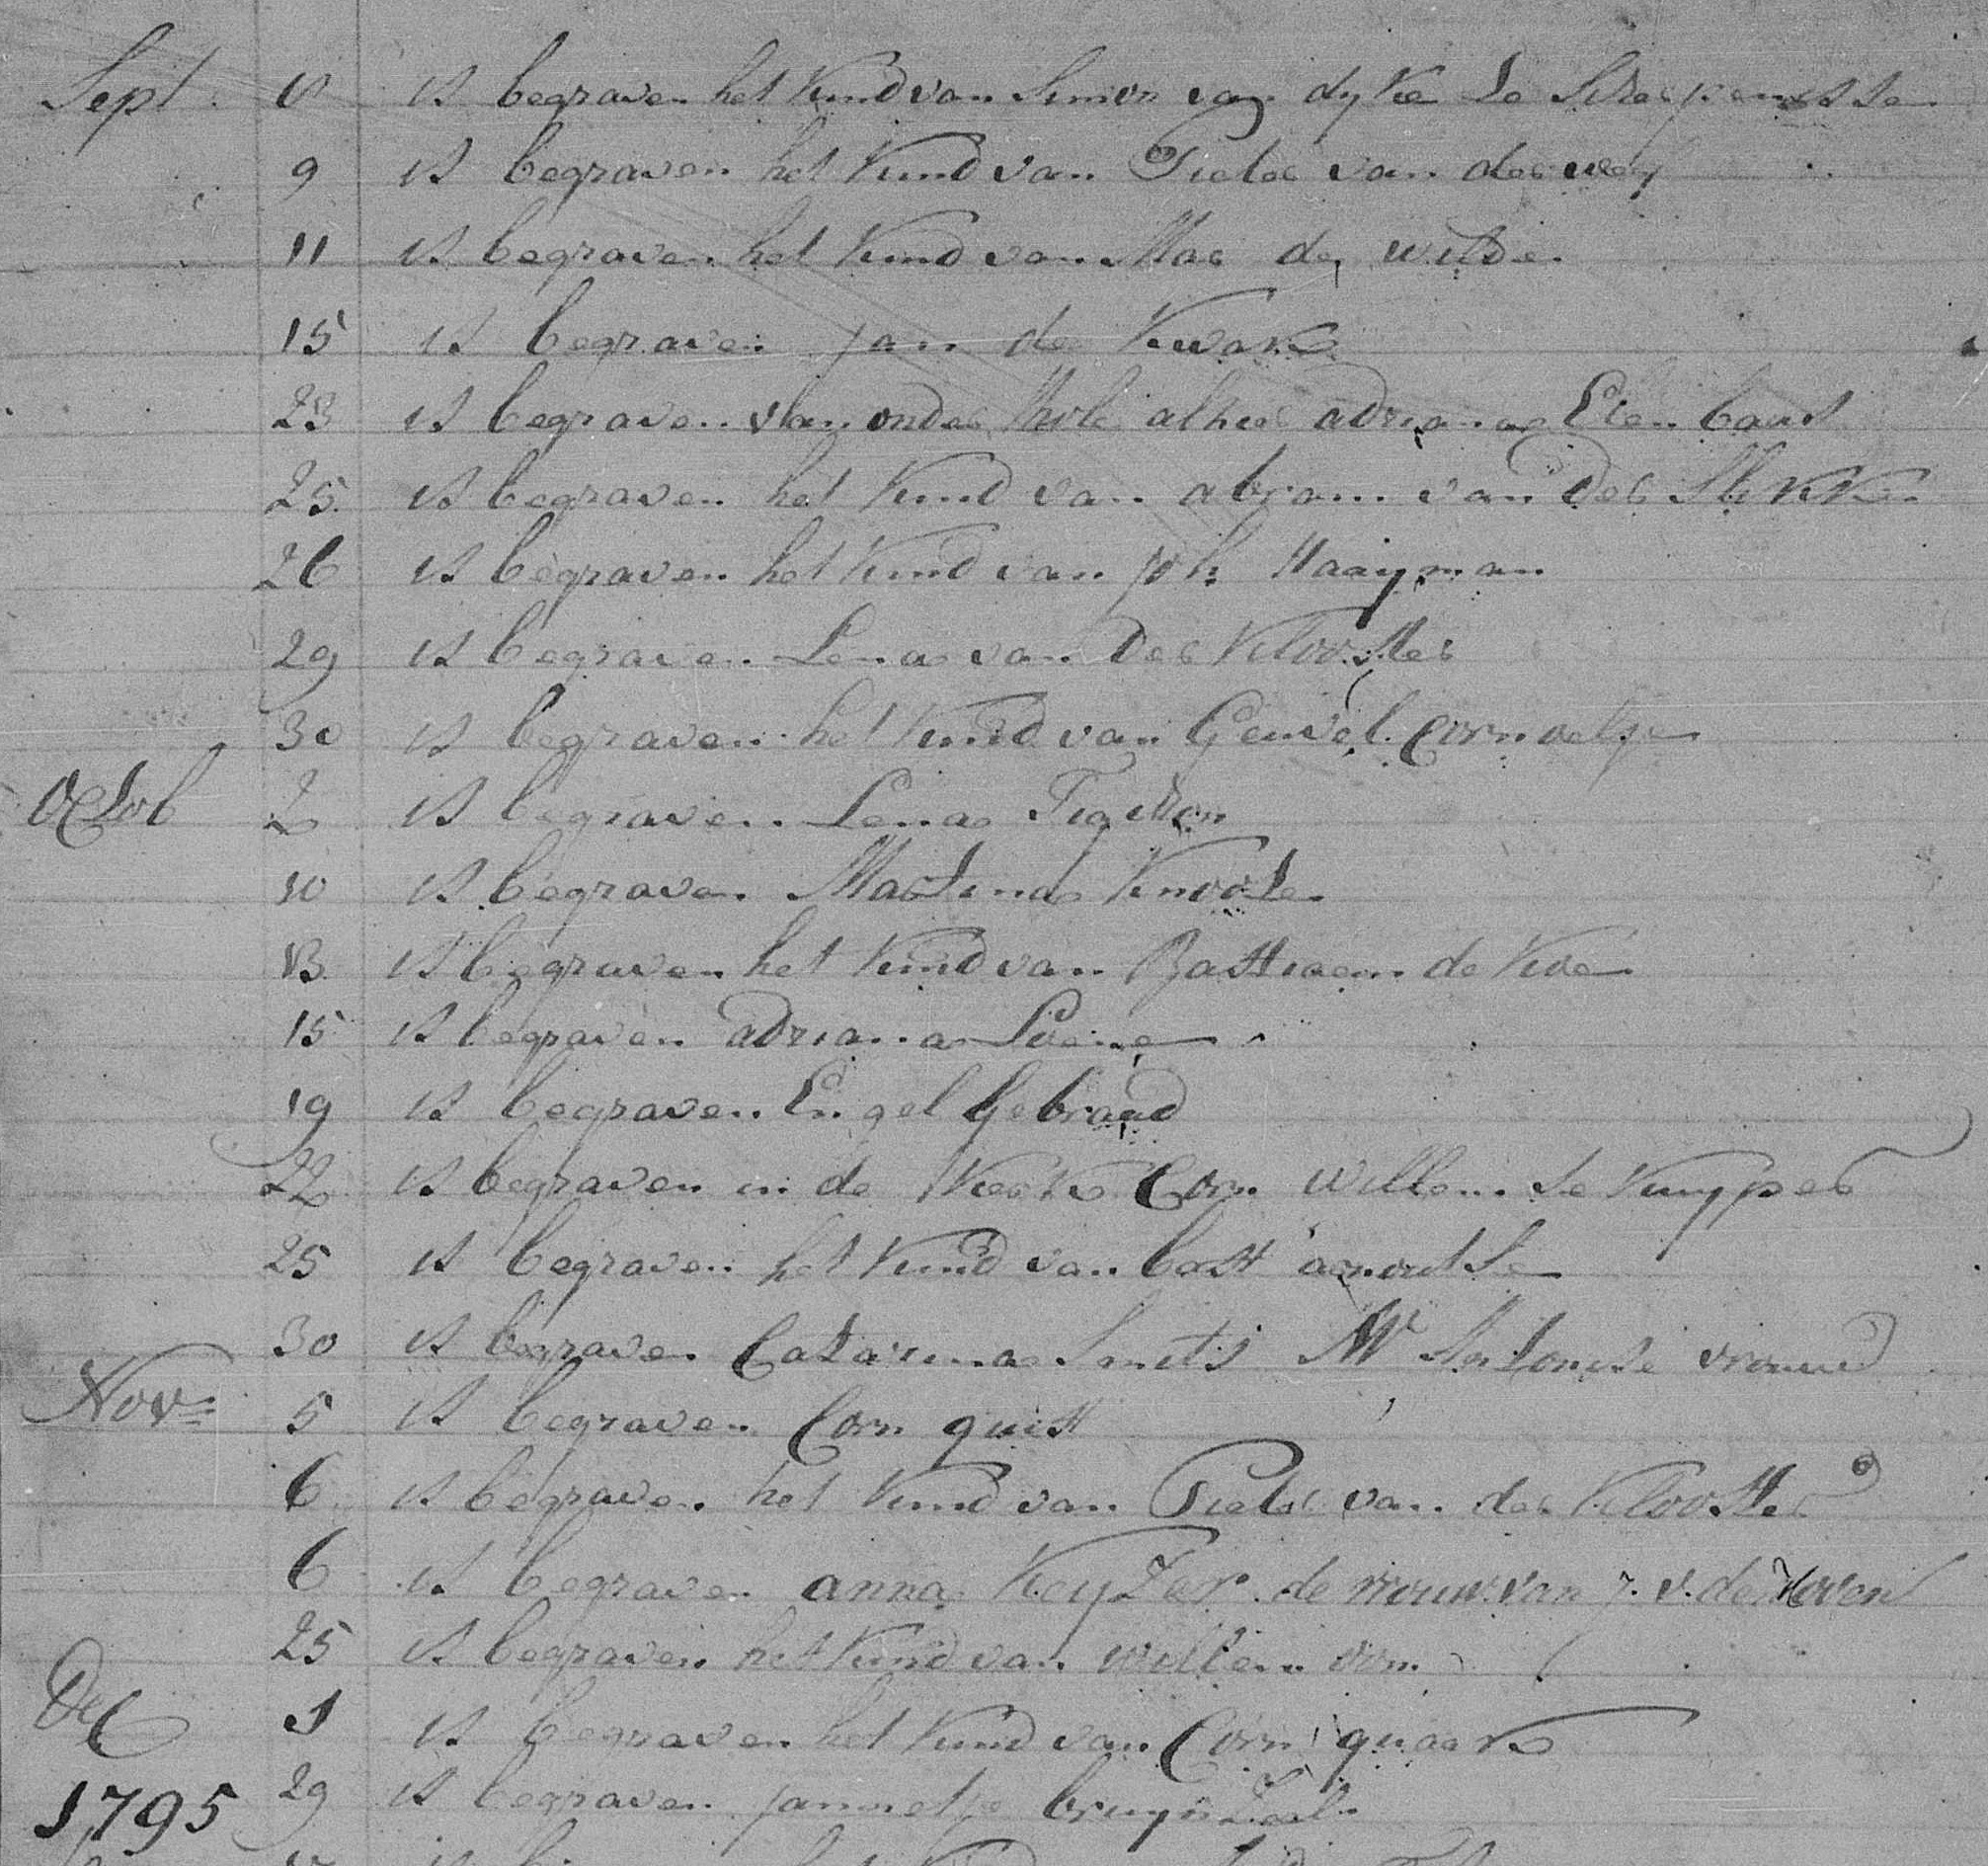 Sept. 8 is begraven het kind van Simon van dyke te Scherpenisse
9 is begraven het kind van Pieter van der weg
11 is begraven het kind van Mar de wilde
15 is begraven Jan de Kwake
23 is begraven van onder alhier adriana
25 is begraven het kind van abram van der Slikke
26 is begraven het kind van Joh Haayman
29 is begraven Lena van der Klooster
30 is begraven het kind van Geuvel Cornelese
Octob 2 is begraven Lena
10 is begraven Martina Knoote
13 is begraven het kind van Bastiaan de
15 is begraven adriana
19 is begraven Engel Gebraad
22 is begraven in de Kerke Corn Willem de Kuyper
25 is begraven het kind van bast arnoutse
30 is begraven Catarina Smits vrouw
Nov 5 is begraven Corn quist
6 is begraven het kind van Pieter van der Klooster
6 is begraven anna Keyzer de vrouw van J. v. der Hoven
25 is begraven het kind van willem
Dec 1 is begraven het kind van Corn quaak
29 is begraven Jannetje bruynzeel
1795